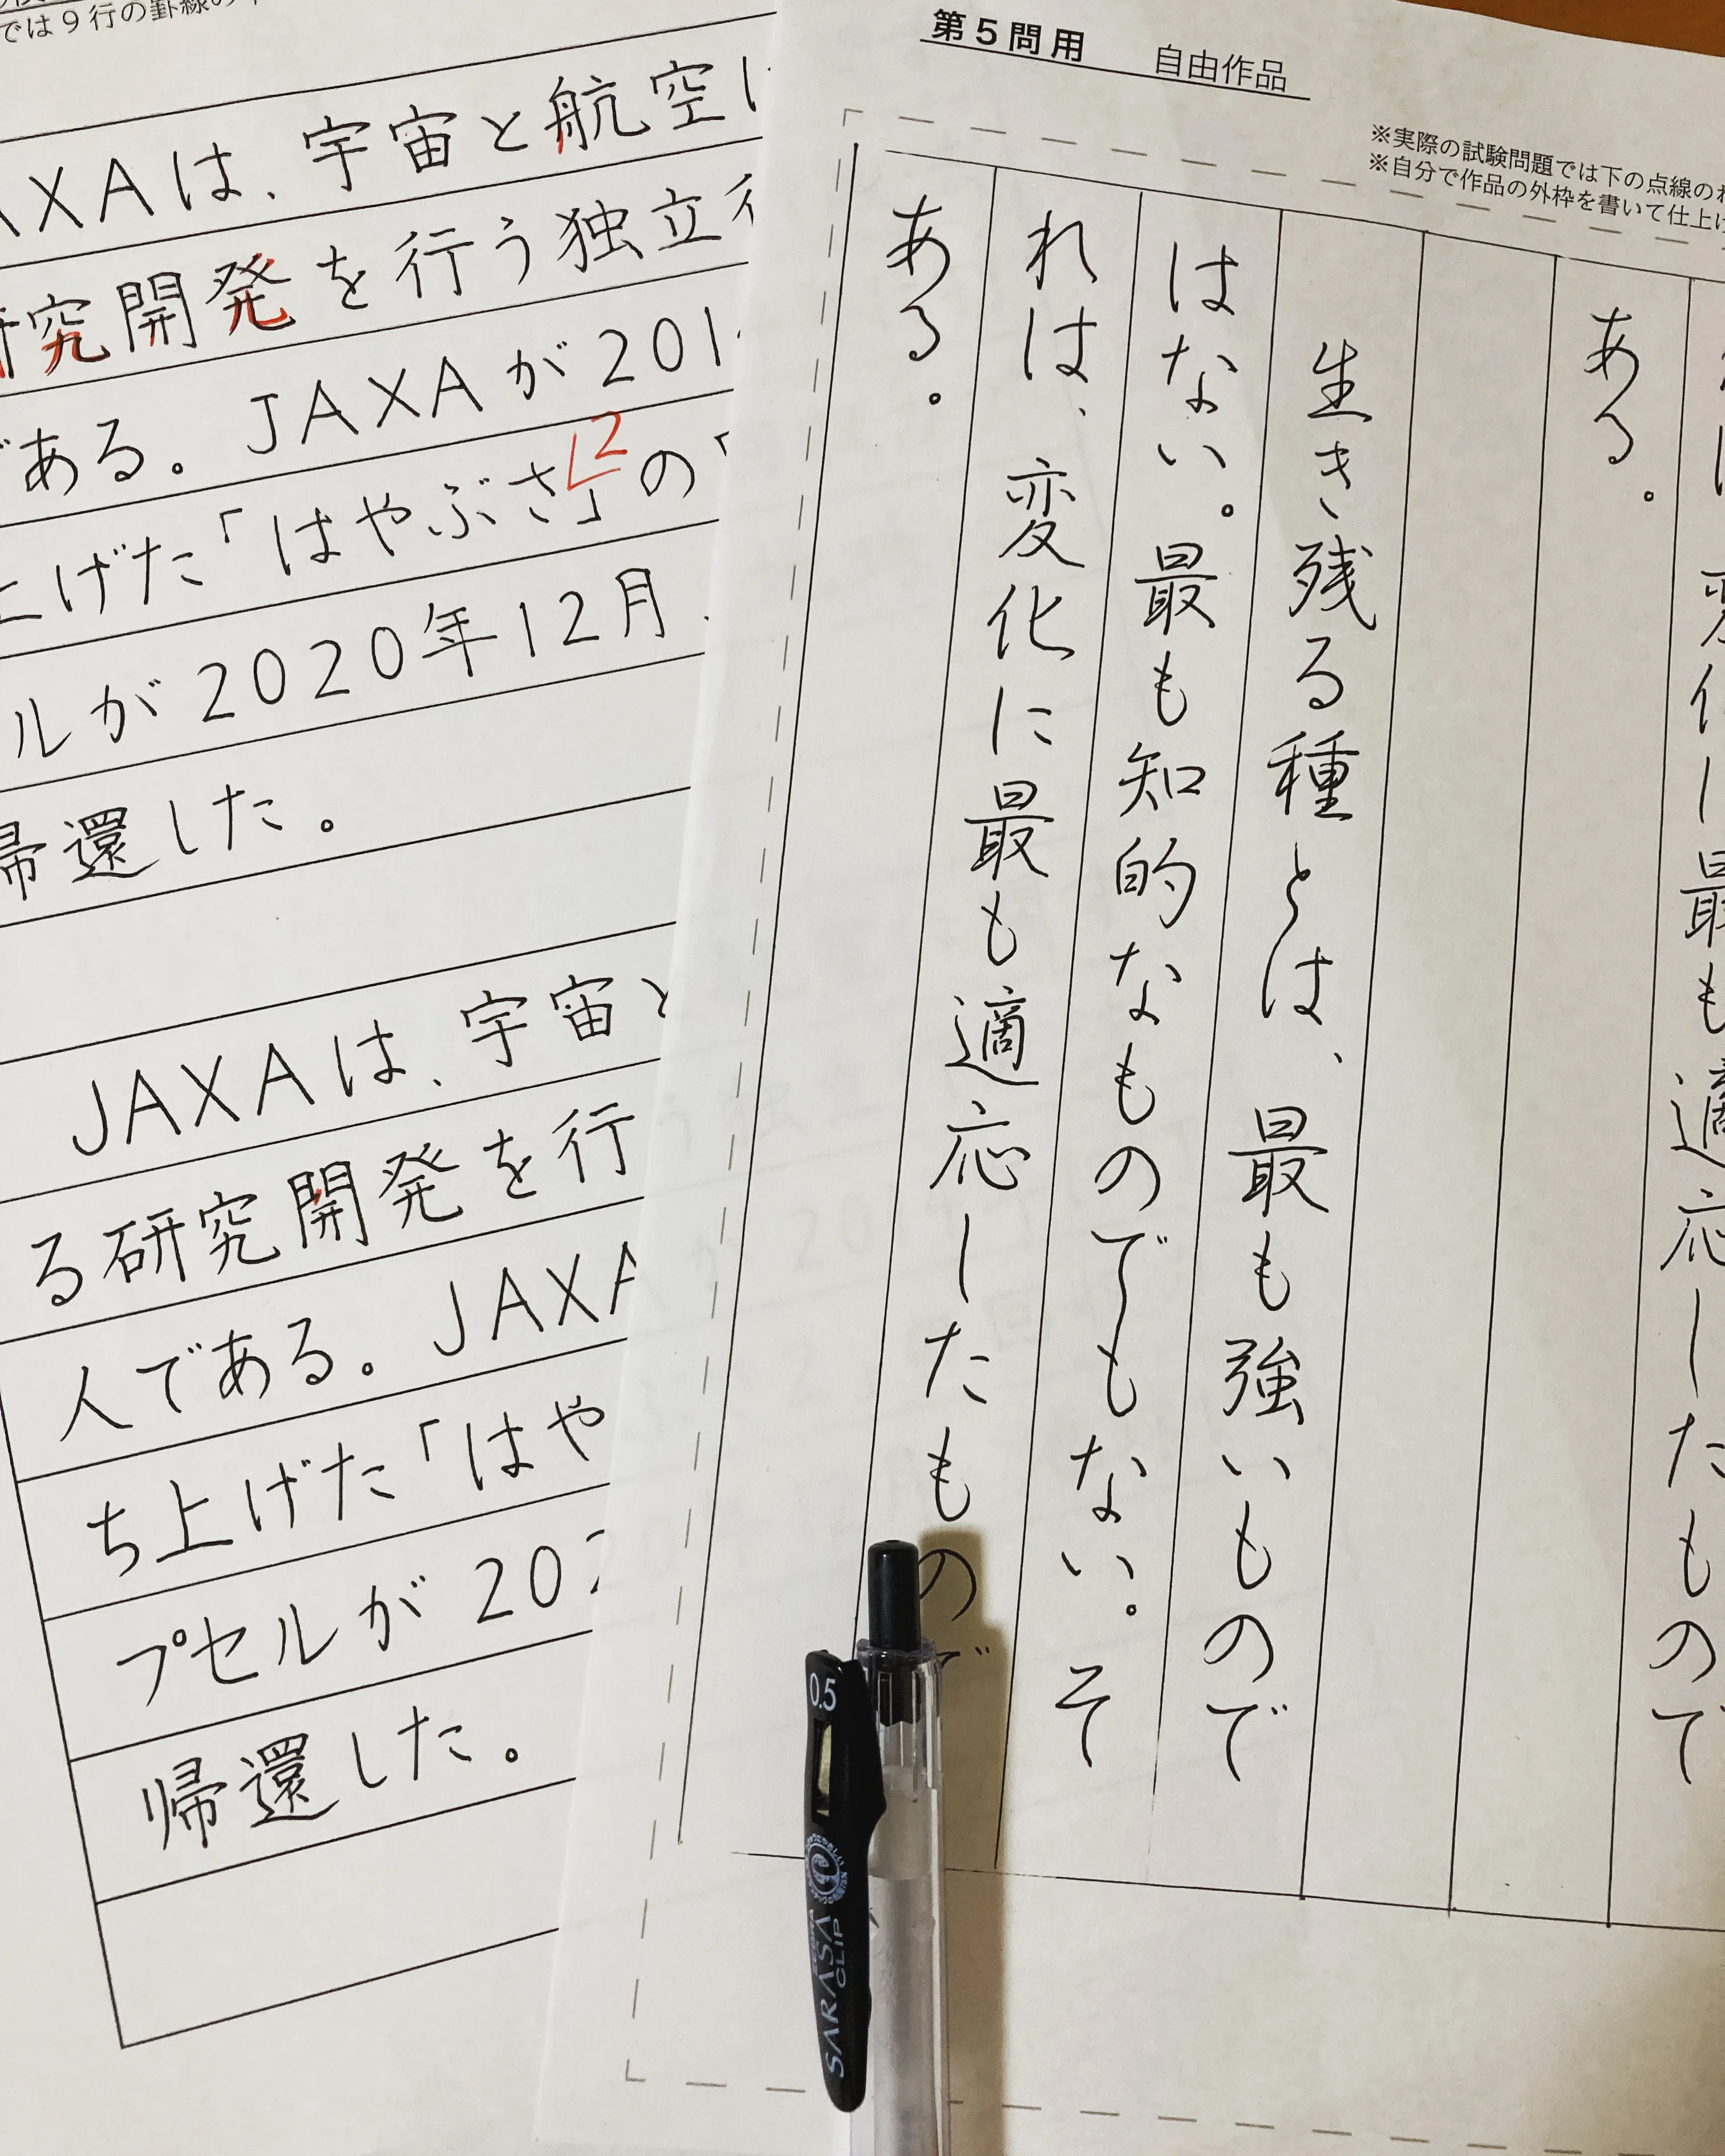 では9行の罫線の
AXAは、宇宙と航空
研究開発を行う独立行
である。JAXAが201
2
上げた「はやぶさ」の「
ルが2020年12月
帰還した。
JAXAは、宇宙と
る研究開発を行
人である。JAXA
ち上げた「はや
プセルが202
帰還した。
第5問用 自由作品
※実際の試験問題では下の点線の
※自分で作品の外枠を書いて仕上げ
変化に最も適応したもので
ある。
生き残る種とは、最も強いもので
はない。最も知的なものでもない。そ
れは、変化に最も適応したもので
ある。
0.5
ZEBRA
SARASA
CLIP